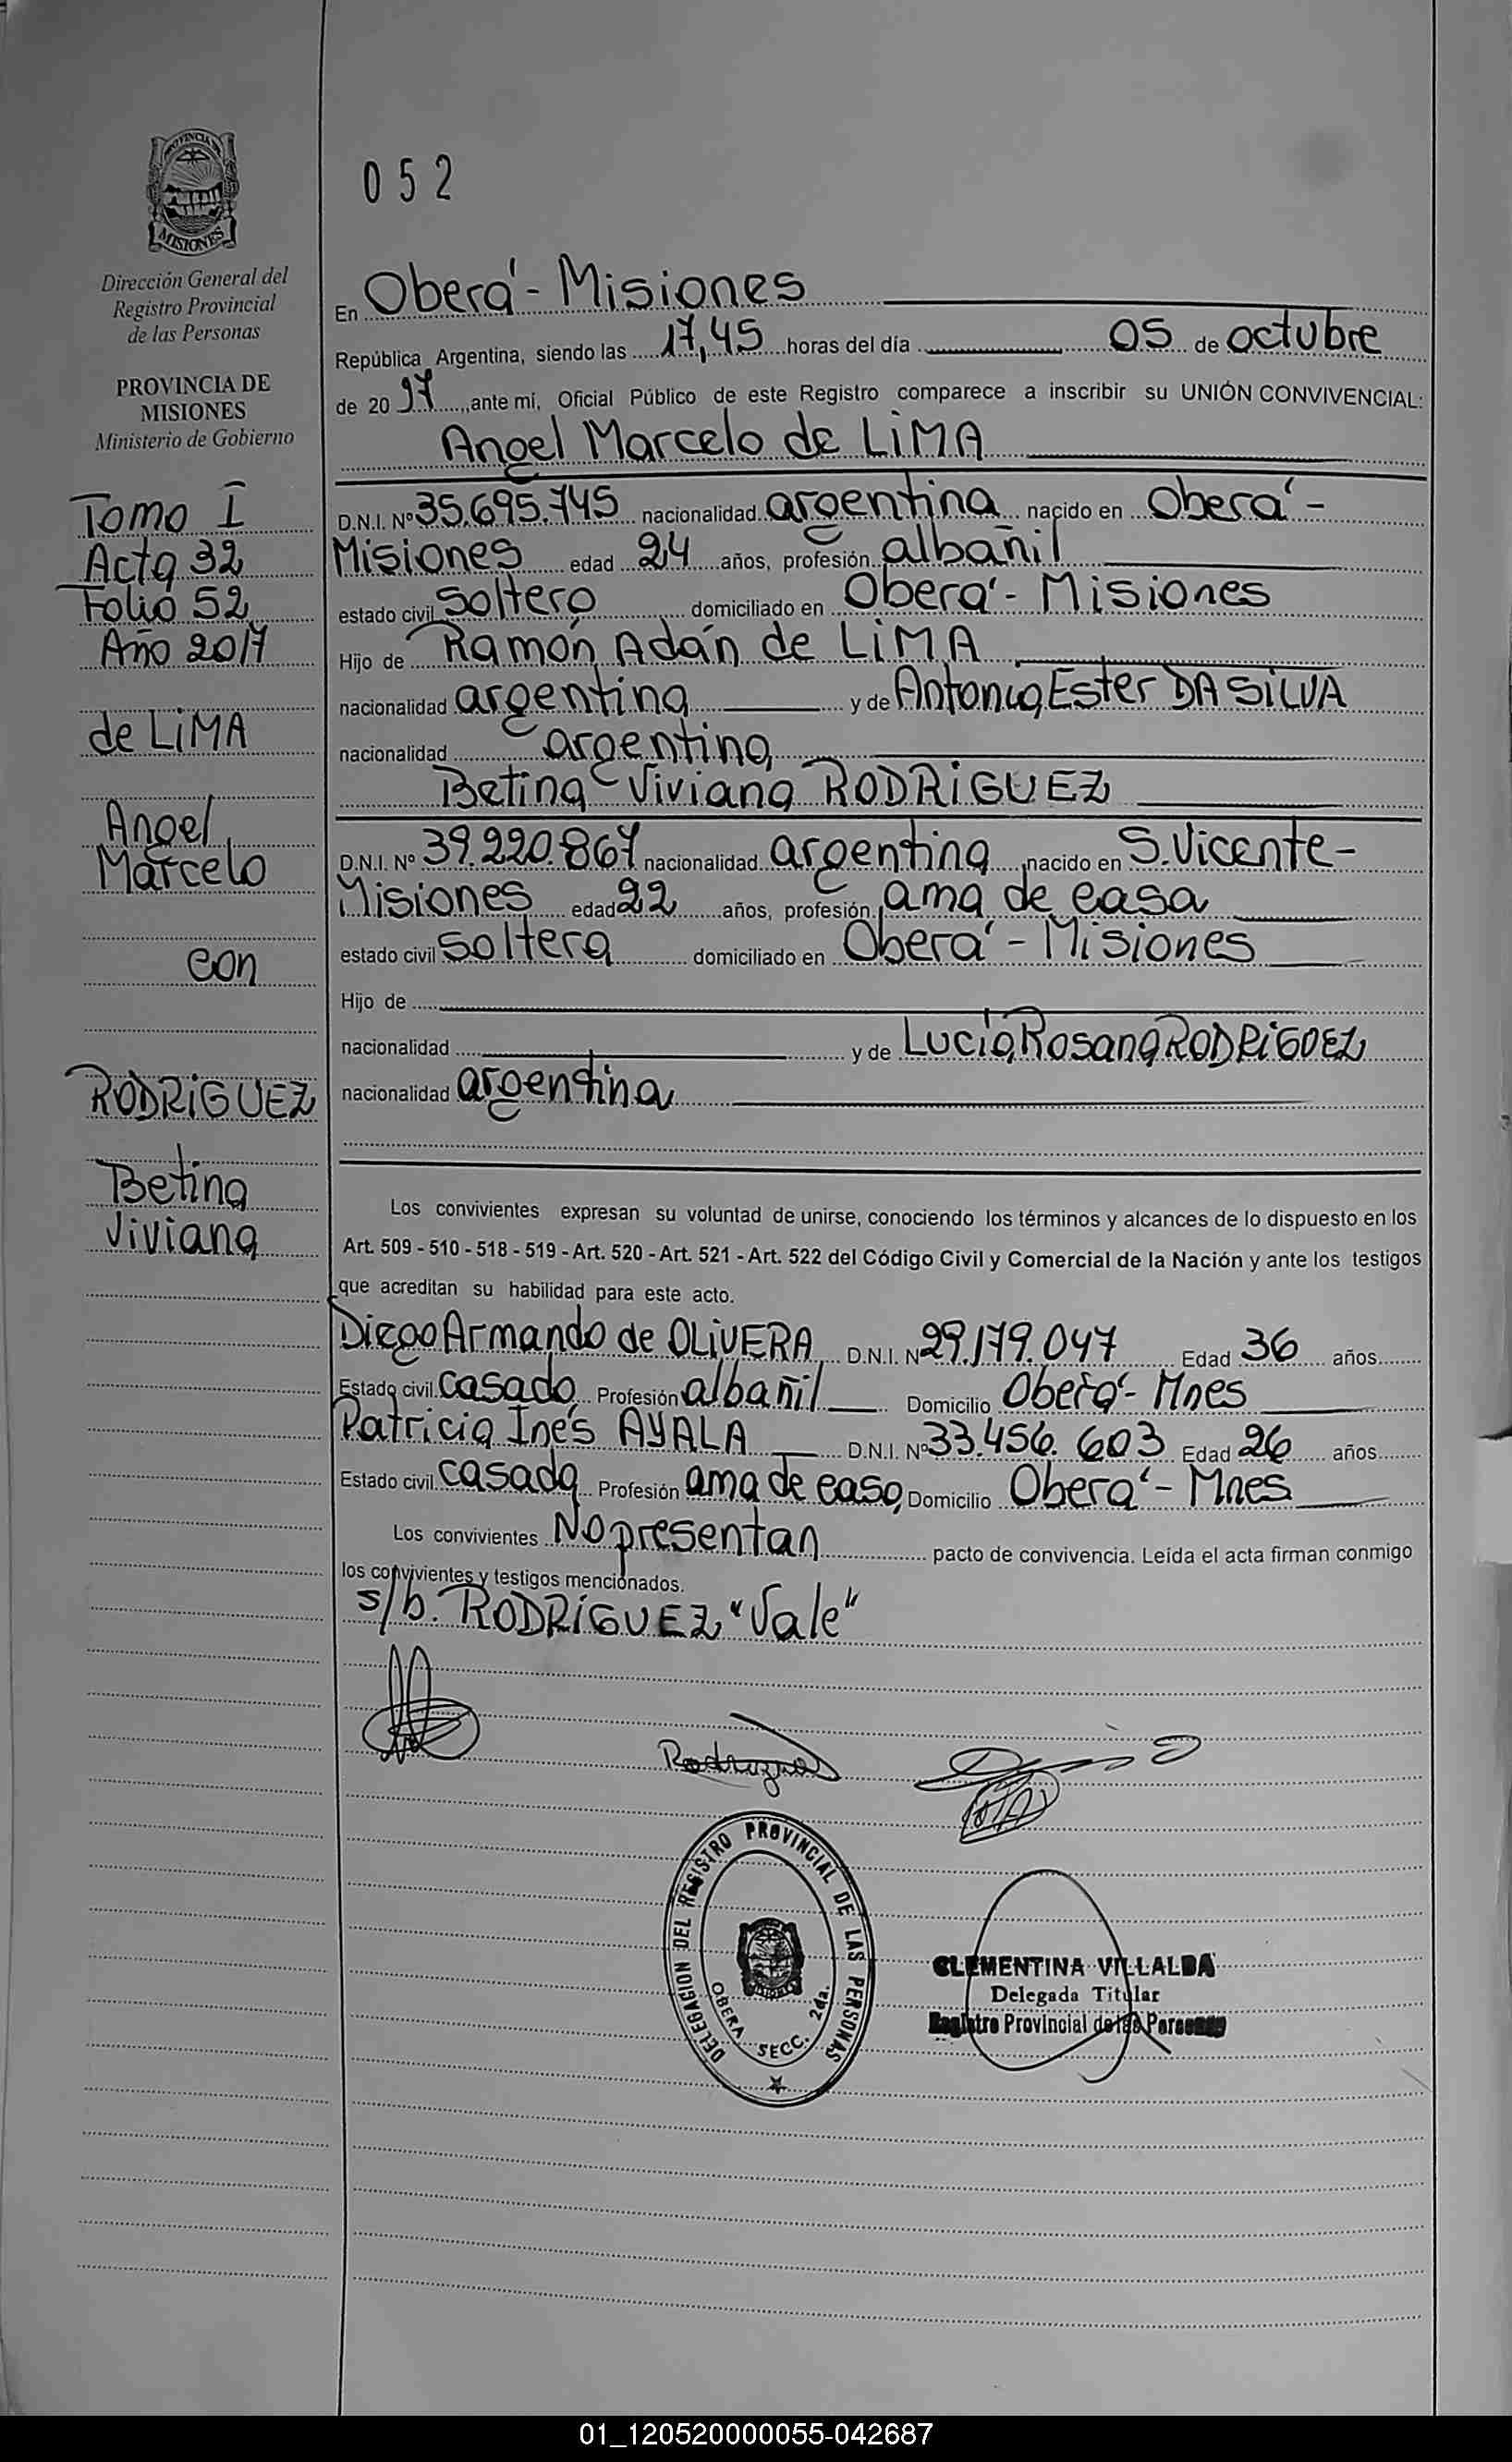 PROVINCIA DE
MISIONES
Dirección General del
Registro Provincial
de las Personas
PROVINCIA DE
MISIONES
Ministerio de Gobierno
Tomo I
Acta 32
Folio 52
Año 2017
de LiMA
Angel
Marcelo
con
RODRiGUEZ
Betina
Viviana
052
En Oberá - Misiones
República Argentina, siendo las 17,45 horas del día 05 de octubre
de 20 17, ante mi, Oficial Público de este Registro comparece a inscribir su UNIÓN CONVIVENCIAL:
Angel Marcelo de LiMA
D.N.I. Nº 35.695.745 nacionalidad argentina nacido en Oberá -
Misiones edad 24 años, profesión albañil
estado civil soltero domiciliado en Oberá - Misiones
Hijo de Ramón Adán de LiMA
nacionalidad argentina y de Antonia Ester DA SiLVA
nacionalidad argentina
Betina Viviana RODRiGUEZ
D.N.I. Nº 39.220.867 nacionalidad argentina nacido en S. Vicente -
Misiones edad 22 años, profesión ama de casa
estado civil soltera domiciliado en Oberá - Misiones
Hijo de
nacionalidad y de Lucia Rosana RODRiGUEZ
nacionalidad argentina
Los convivientes expresan su voluntad de unirse, conociendo los términos y alcances de lo dispuesto en los
Art. 509 - 510 - 518 - 519 - Art. 520 - Art. 521 - Art. 522 del Código Civil y Comercial de la Nación y ante los testigos
que acreditan su habilidad para este acto.
Diego Armando de OLiVERA D.N.I. Nº 29.179.047 Edad 36 años
Estado civil casado Profesión albañil Domicilio Oberá - Mnes
Patricia Inés AYALA D.N.I. Nº 33.456.603 Edad 26 años
Estado civil casada Profesión ama de casa Domicilio Oberá - Mnes
Los convivientes No presentan pacto de convivencia. Leída el acta firman conmigo
los convivientes y testigos mencionados.
s/b. RODRíGUEZ "Vale"
Rodriguez
DELEGACION DEL REGISTRO PROVINCIAL DE LAS PERSONAS
OBERA SECC. 2da.
CLEMENTINA VILLALBA
Delegada Titular
Registro Provincial de las Personas
01_120520000055-042687